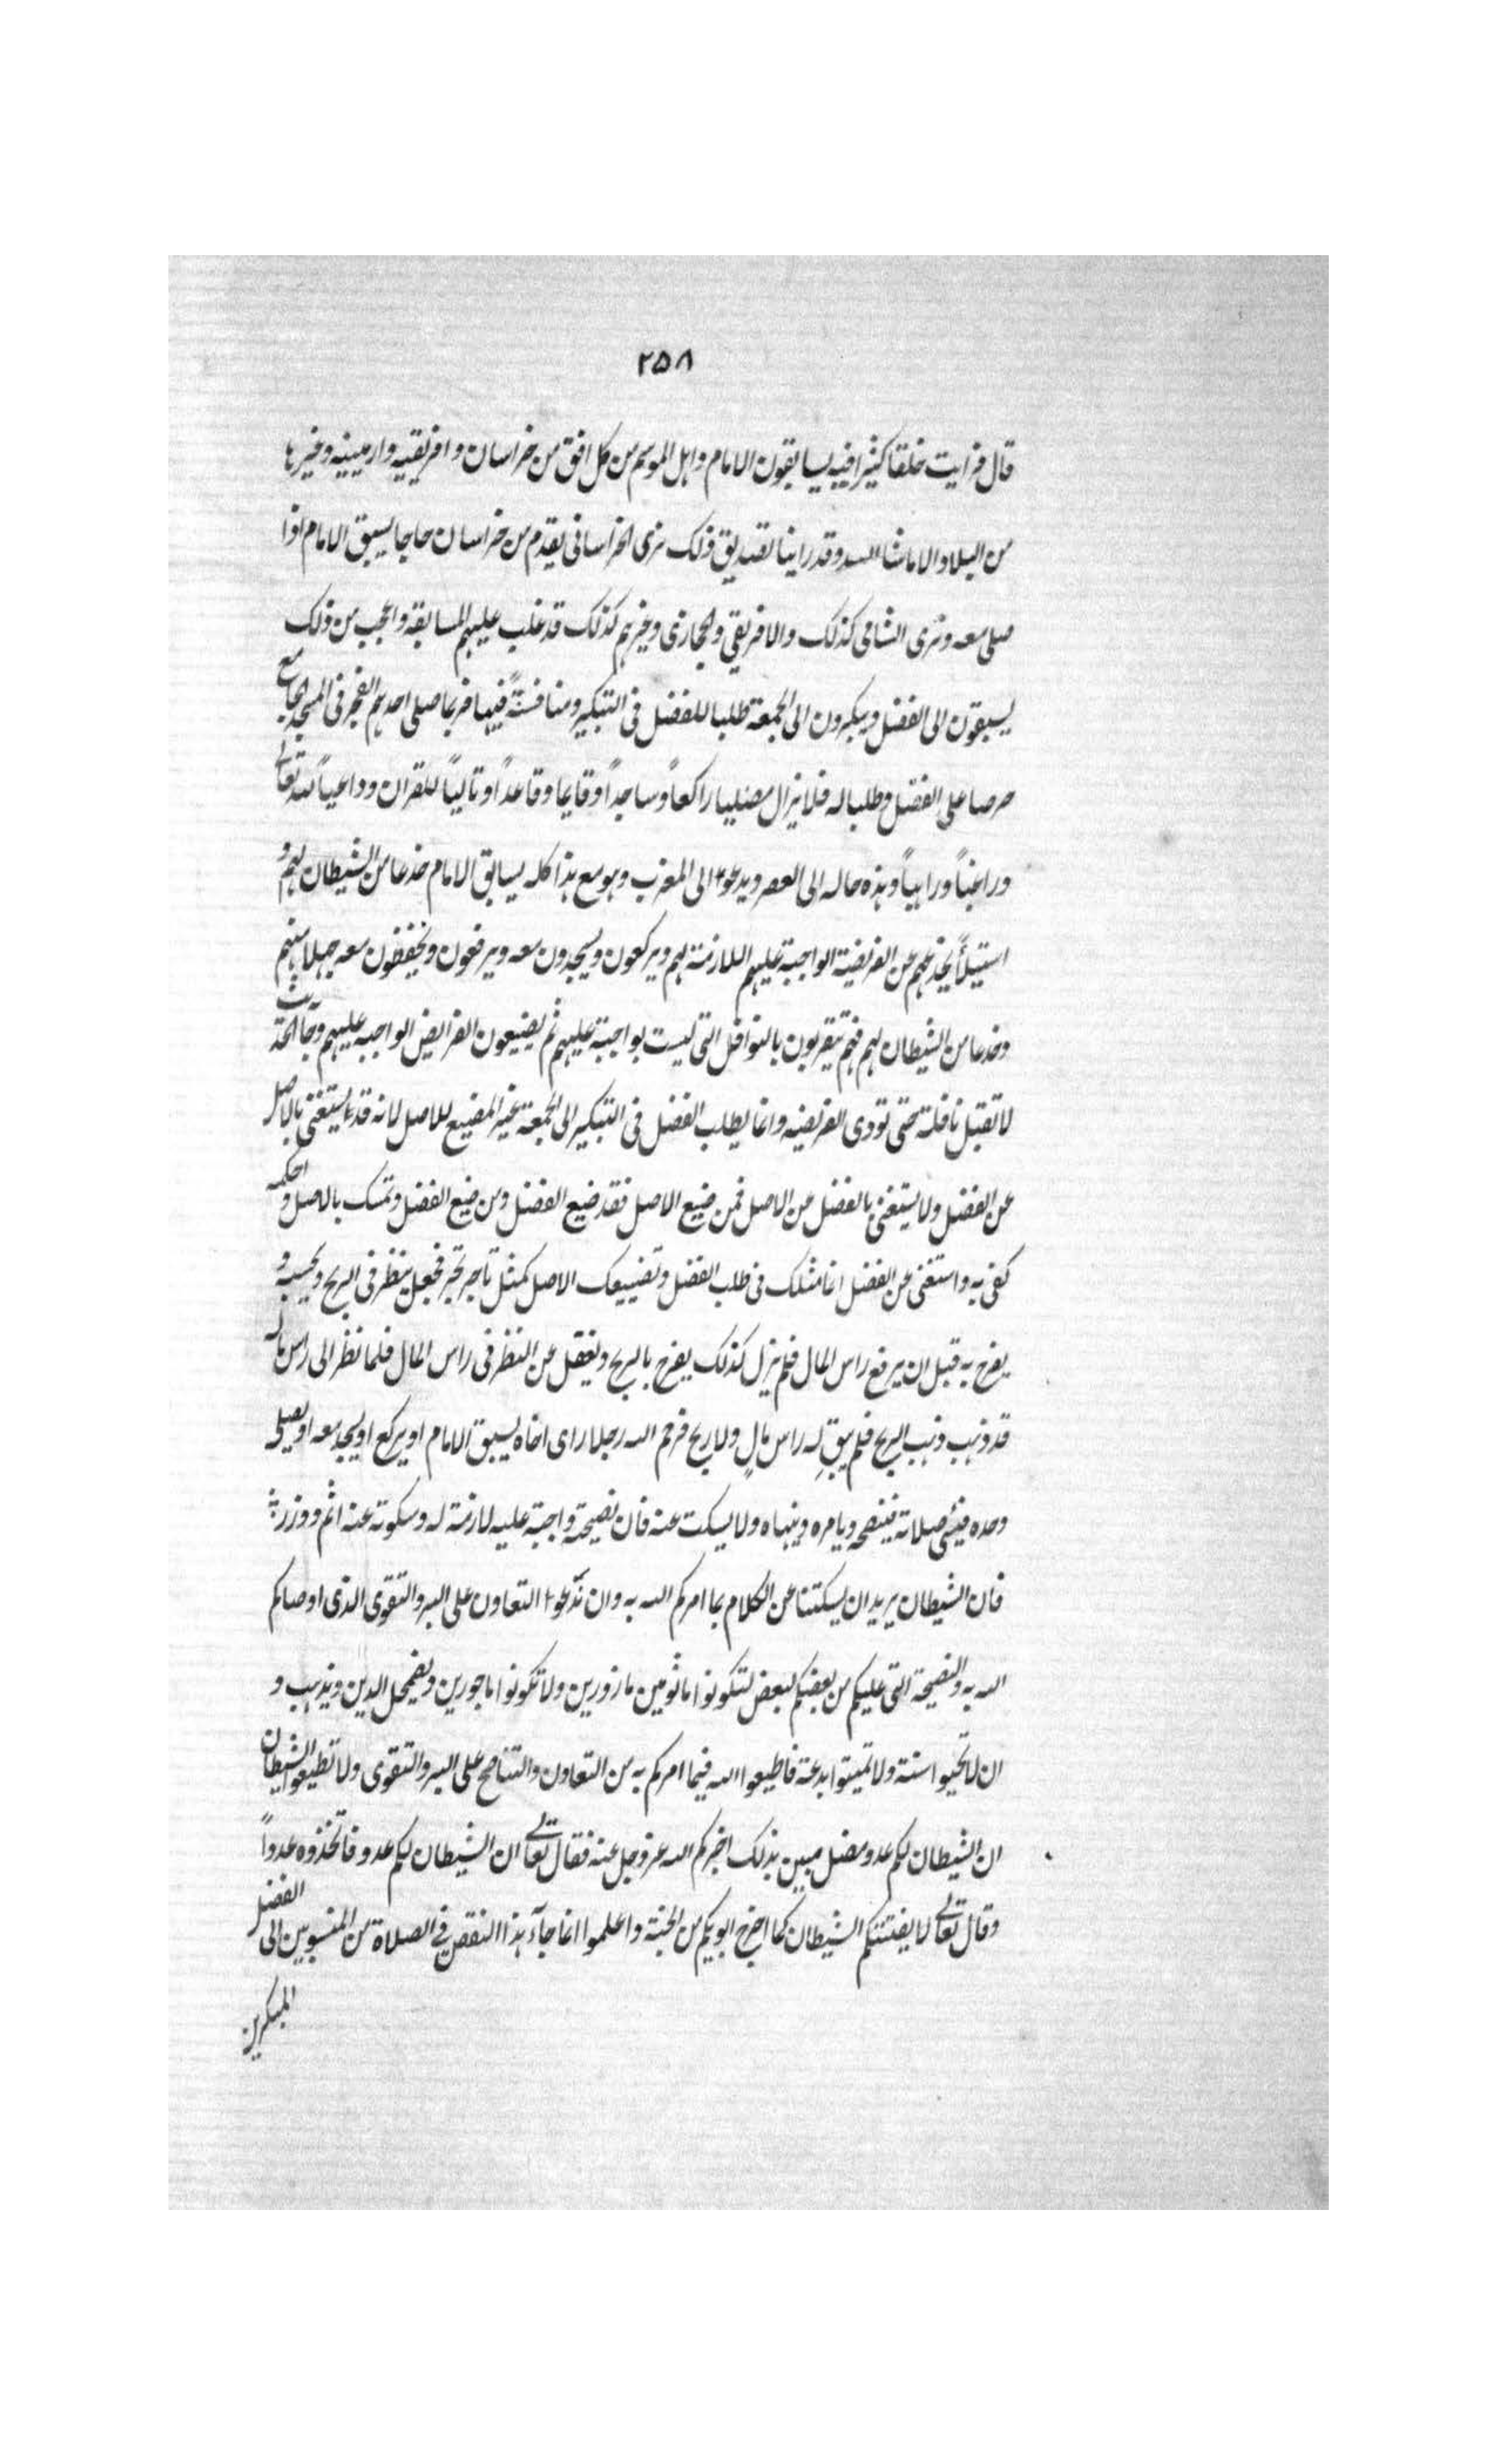 ٢٥٨
قال فرايت خلقا كثيرا فيه يسابقون الامام واهل الموسم من كل افق من خراسان وافريقيه وارمينيه وغيرها
من البلاد الا ماشا الله وقد راينا تصديق ذلك نرى الخراسانى يقدم من خراسان حاجا يسبق الامام اذا
صلى معه ونرى الشامى كذلك والافريقي والحجازى وغيرهم كذلك قد غلب عليهم المسابقه واعجب من ذلك
يسبقون الى الفضل ويبكرون الى الجمعة طلبا للفضل فى التبكير ومنافسةً فيها فربما صلى احدهم الفجر فى المسجد الجامع
حرصا على الفضل وطلبا له فلا يزال مصليا راكعاً وساجداً وقايما وقاعداً وتالياً للقران وداعياً لله تعالى
وراغباً وراهباً وهذه حاله الى العصر ويدعوا الى المغرب وهو مع هذا كله يسابق الامام خدعا من الشيطان لهم و
استيلاً يخدعهم عن الفريضة الواجبة عليهم اللازمة لهم ويركعون ويسجدون معه ويرفعون ويخفضون معه جهلا منهم
وخدعا من الشيطان لهم فهم يتقربون بالنوافل التى ليست بواجبة عليهم ثم يضيعون الفرايض الواجبه عليهم وجآ الحديث
لا تقبل نافلة حتى تودى الفريضه وانما يطلب الفضل فى التبكير الى الجمعة غير المضيع للاصل لانه قد يستغنى بالاصل
عن الفضل ولا يستغنى بالفضل عن الاصل فمن ضيع الاصل فقد ضيع الفضل ومن ضيع الفضل وتمسك بالاصل واحكمه
كفى به واستغنى عن الفضل انما مثلك فى طلب الفضل وتضييعك الاصل كمثل تاجر تجر فجعل ينظر فى الربح ويحسبه و
يفرح به قبل ان يرفع راس المال فلم يزل كذلك يفرح بالربح ويغفل عن النظر فى راس المال فلما نظر الى راس ماله
قد ذهب وذهب الربح فلم يبق له راس مالٍ ولا ربح فرحم الله رجلا راى اخاه يسبق الامام او يركع او يسجد معه او يصلى
وحده فيسئى صلاته فينصحه ويامره وينهاه ولا يسكت عنه فان نصيحته واجبة عليه لازمة له وسكوته عنه اثم ووزر
فان الشيطان يريد ان يسكتنا عن الكلام بما امركم الله به وان تدعوا التعاون على البر والتقوى الذى اوصاكم
الله به والنصيحة التى عليكم من بعضكم لبعض لتكونوا ماثومين مازورين ولا تكونوا ماجورين ويضمحل الدين ويذهب و
ان لا تحيوا سنة ولا تميتوا بدعة فاطيعوا الله فيما امركم به من التعاون والتناصح على البر والتقوى ولا تطيعوا الشيطان
ان الشيطان لكم عدو مضل مبين بذلك اخبركم الله عز وجل عنه فقال تعالى ان الشيطان لكم عدو فاتخذوه عدواً
وقال تعالى لا يفتننكم الشيطان كما اخرج ابويكم من الجنة واعلموا انما جآء هذا النقص في الصلاة من المنسوبين الى الفضل
المبكرين